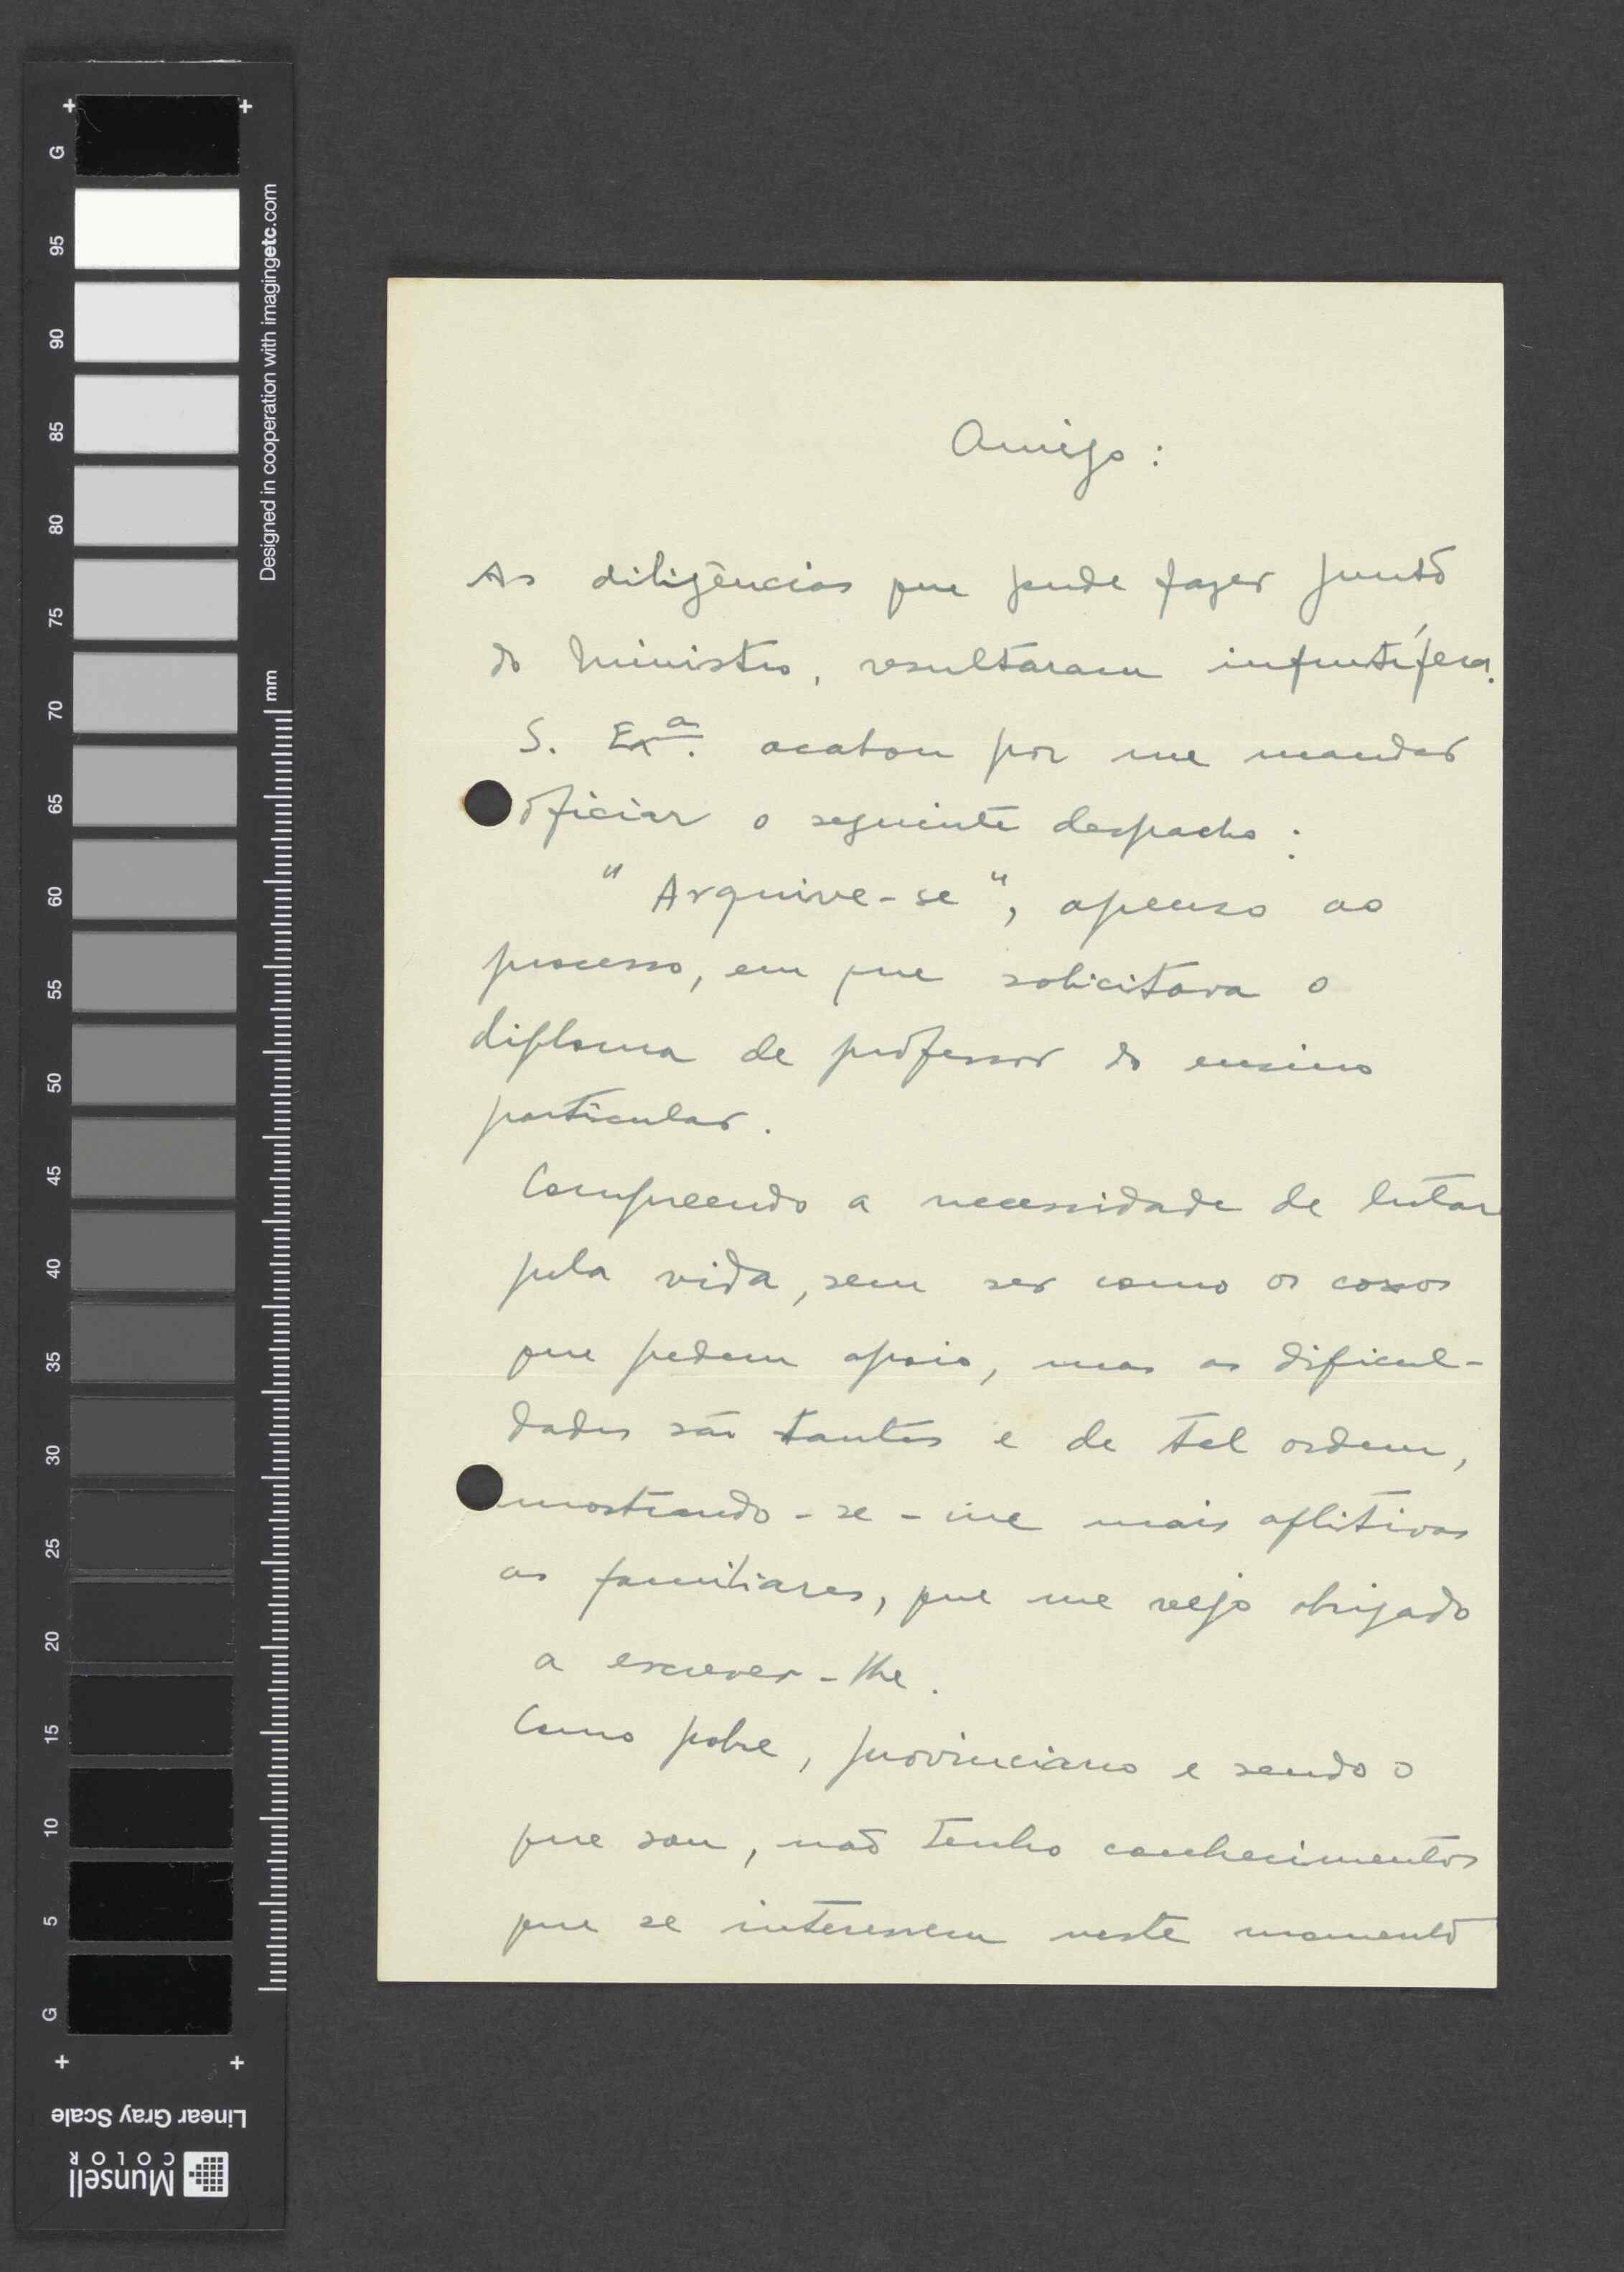 Amigo:
As diligências que pude fazer junto
do Ministro, resultaram infrutífera.
S. Exª. acabou por me mandar
oficiar o seguinte despacho:
"Arquive-se", apenso ao
processo, em que solicitava o
diploma de professor do ensino
particular.
Compreendo a necessidade de lutar
pela vida, sem ser como os coxos
que pedem apoio, mas as dificul-
dades são tantas e de tal ordem,
mostrando-se-me mais aflitivas
as familiares, que me vejo obrigado
a escrever-lhe.
Como pobre, provinciano e sendo o
que sou, não tenho conhecimentos
que se interessem neste momento
G
95
90
85
80
75
70
65
60
55
50
45
40
35
30
25
20
15
10
5
G
Designed in cooperation with imagingetc.com
mm
Linear Gray Scale
Munsell
COLOR